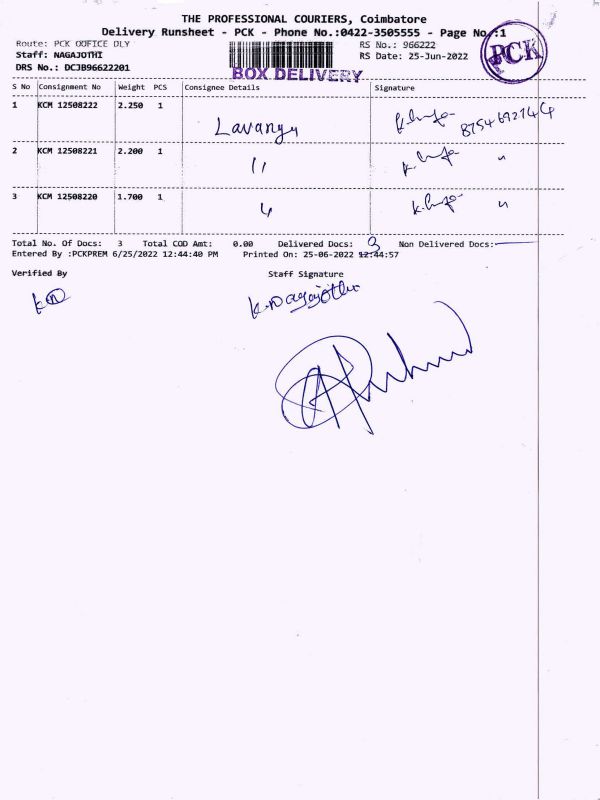 THE PROFESSIONAL COURIERS, Coimbatore
Delivery Runsheet - PCK - Phone No.:0422-3505555 - Page No.:1
Route: PCK OOFICE DLY RS No.: 966222
Staff: NAGAJOTHI RS Date: 25-Jun-2022
DRS No.: DCJB96622201
PCK
BOX DELIVERY
S No Consignment No Weight PCS Consignee Details Signature
1 KCM 12508222 2.250 1 Lavanya
2 KCM 12508221 2.200 1 11
3 KCM 12508220 1.700 1
Total No. Of Docs: 3 Total COD Amt: 0.00 Delivered Docs: 3 Non Delivered Docs:
Entered By :PCKPREM 6/25/2022 12:44:40 PM Printed On: 25-06-2022 12:44:57
Verified By Staff Signature
K.Nagajothi